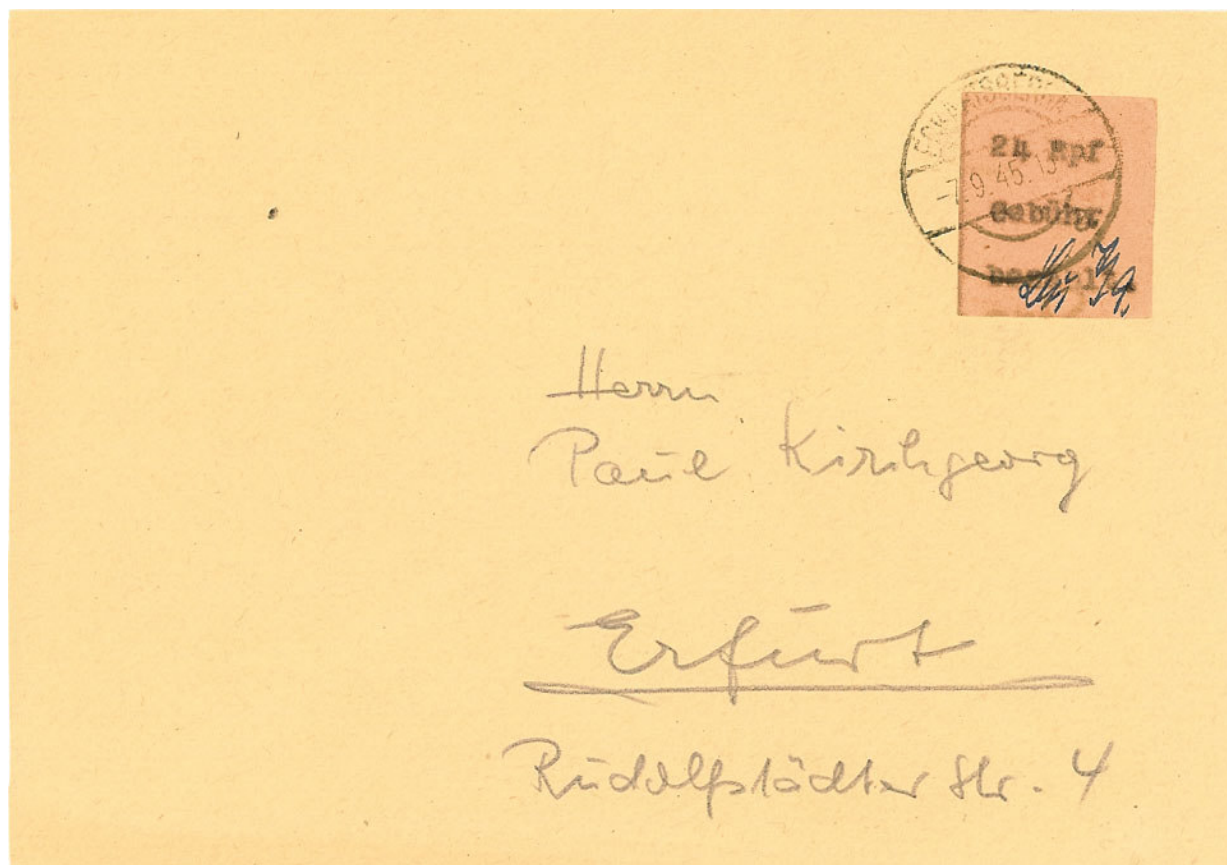 ECKARTSBERGA
-7.9.45.13
24 Rpf
Gebühr
bezahlt.
7/9.
Herrn
Paul Kirchgeorg
Erfurt
Rudolfstädter Str. 4